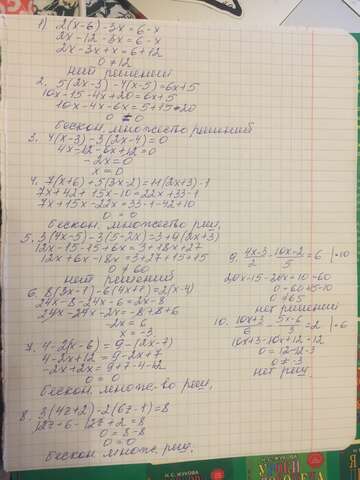 1) 2(x-6)-3x=6-x
2x-12-3x=6-x
2x-3x+x=6+12
0≠12
нет решений
2. 5(2x-3)-4(x-5)=6x+5
10x-15-4x+20=6x+5
10x-4x-6x=5+15-20
0=0
бескон. множество решений
3. 4(x-3)-3(2x-4)=0
4x-12-6x+12=0
-2x=0
x=0
4. 7(x+6)+5(3x-2)=11(2x+3)-1
7x+42+15x-10=22x+33-1
7x+15x-22x=33-1-42+10
0=0
бескон. множество реш.
5. 3(4x-5)-3(5-2x)=3+
12x-15-15+6x=3+18x+27
12x+6x-18x=3+27+15+15
0≠60
нет решений
6. 8(3x-1)-6(4x+1)=2(x-4)
24x-8-24x-6=2x-8
24x-24x-2x=-8+8+6
-2x=6
x=-3
7. 4-2(x-6)=9-(2x-7)
4-2x+12=9-2x+7
-2x+2x=9+7-4-12
0=0
бескон. множ-во реш.
8. 3(4z+2)-2(6z-1)=8
12z-6-12z+2=8
0=8-8
0=0
бескон. множ. реш.
9. 4x-3/2-10x-2/5=6 |·10
20x-15-20x-10=60
0=60+5-10
0≠65
нет решений
10. 10x+3/6-5x-6/3=2 |·6
10x+3-10x+12=12
0=12-12-3
0≠-3
нет реш.
Н.С. ЖУКОВА
Н.С. ЖУКОВА
УРОКИ